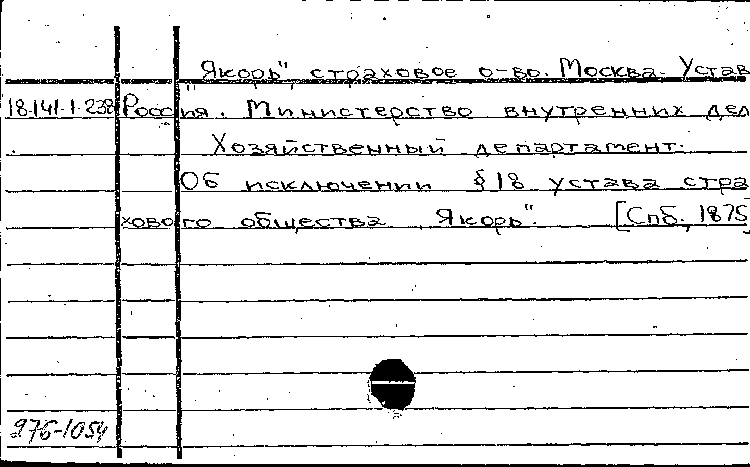 "Якорь", страховое о-во. Москва. Устав
18.141.1.238 Россия. Министерство внутренних дел
Хозяйственный департамент.
Об исключении § 18 устава стра
хового общества „Якорь". [Спб., 1875]
276-1054